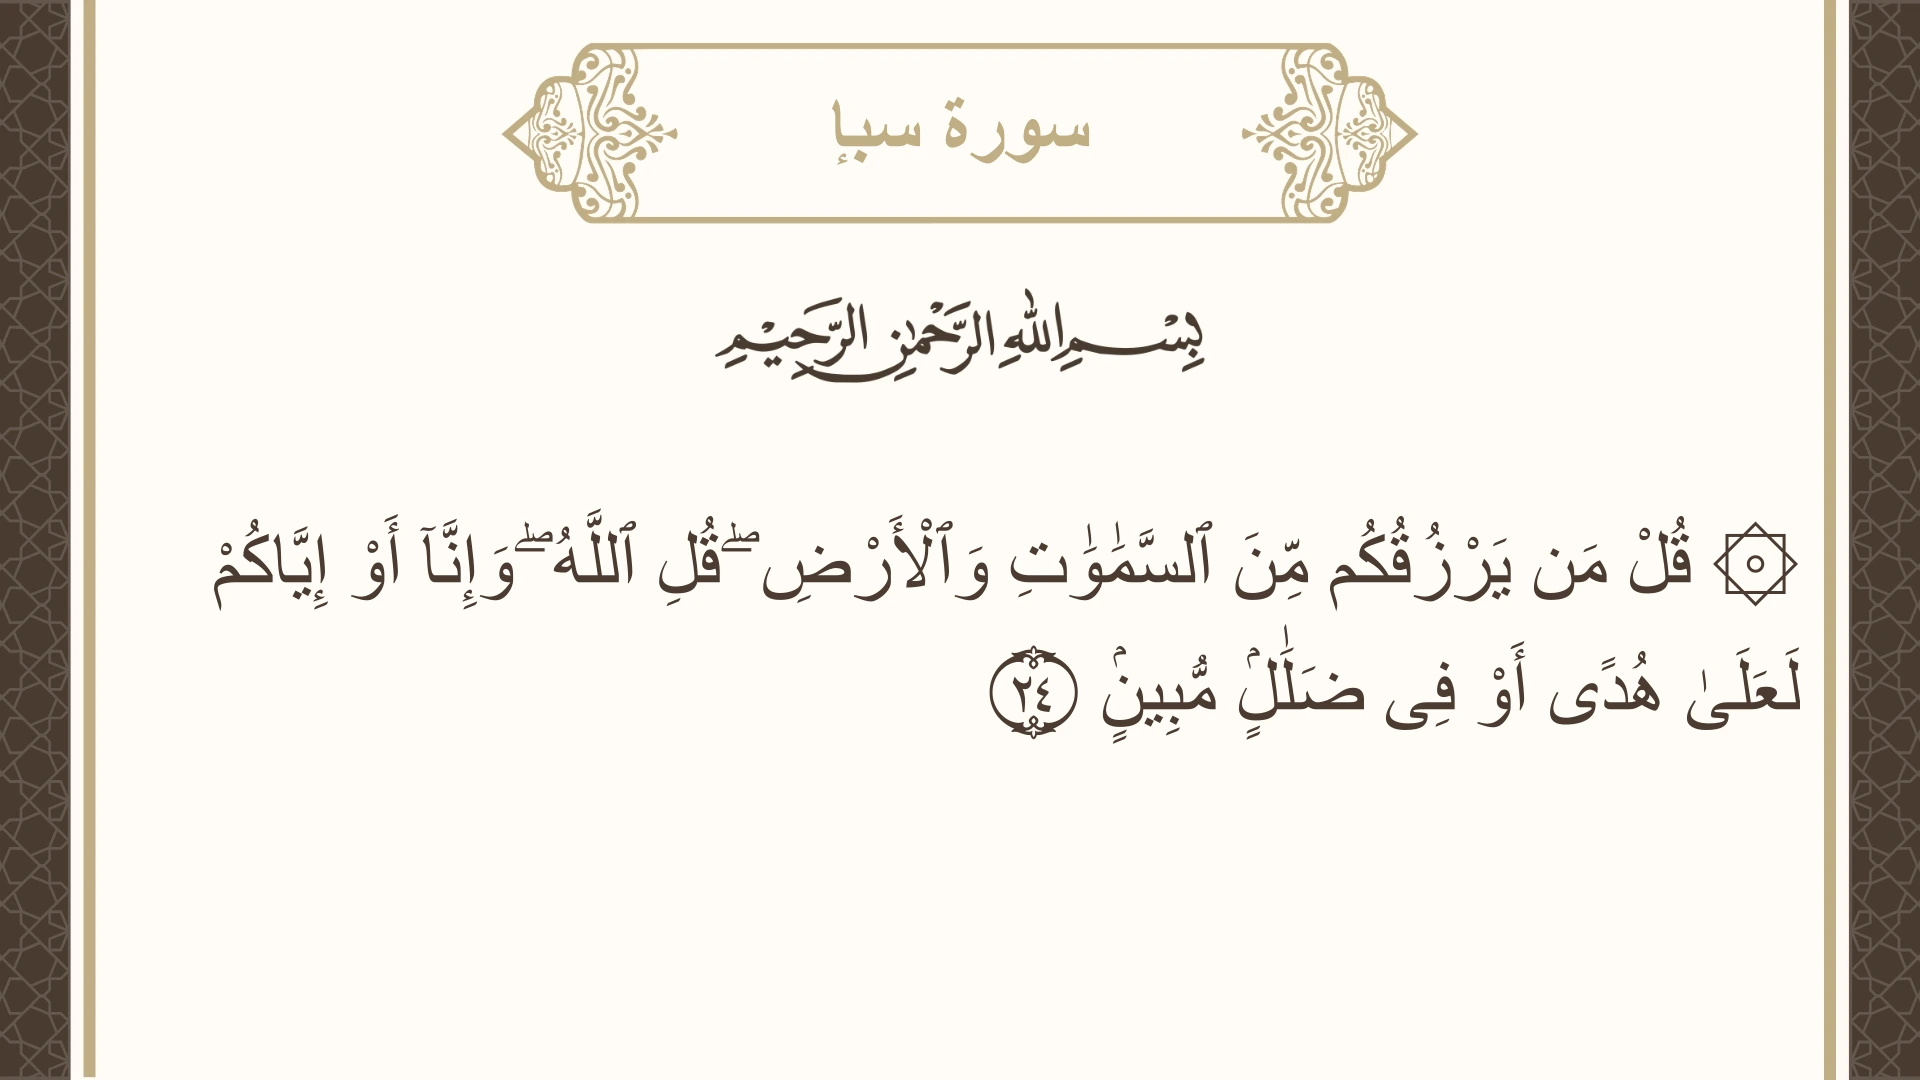 سورة سبإ
بِسْمِ اللهِ الرَّحْمٰنِ الرَّحِيْمِ
۞ قُلْ مَن يَرْزُقُكُم مِّنَ ٱلسَّمَٰوَٰتِ وَٱلْأَرْضِ ۖ قُلِ ٱللَّهُ ۖ وَإِنَّآ أَوْ إِيَّاكُمْ
لَعَلَىٰ هُدًى أَوْ فِى ضَلَٰلٍۢ مُّبِينٍۢ ٢٤